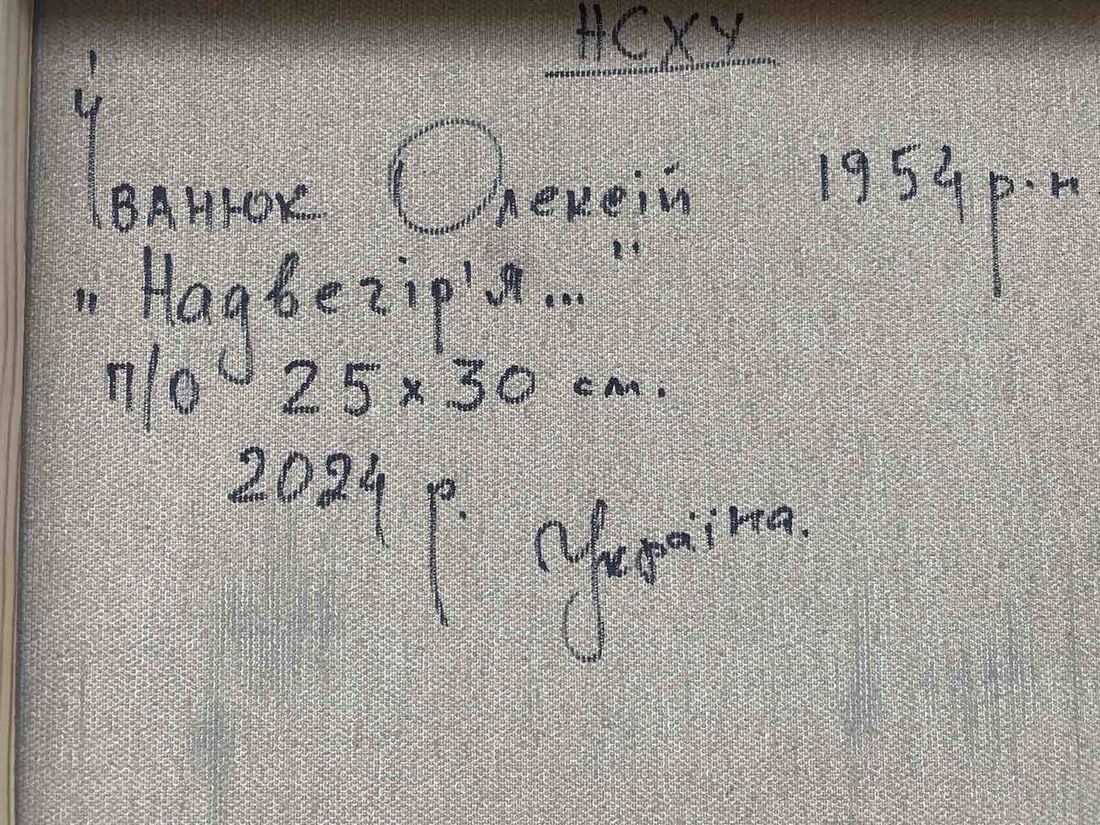 НСХУ
Іванюк Олексій 1954 р.н
"Надвечір'я..."
п/о 25 x 30 см.
2024 р. Україна.